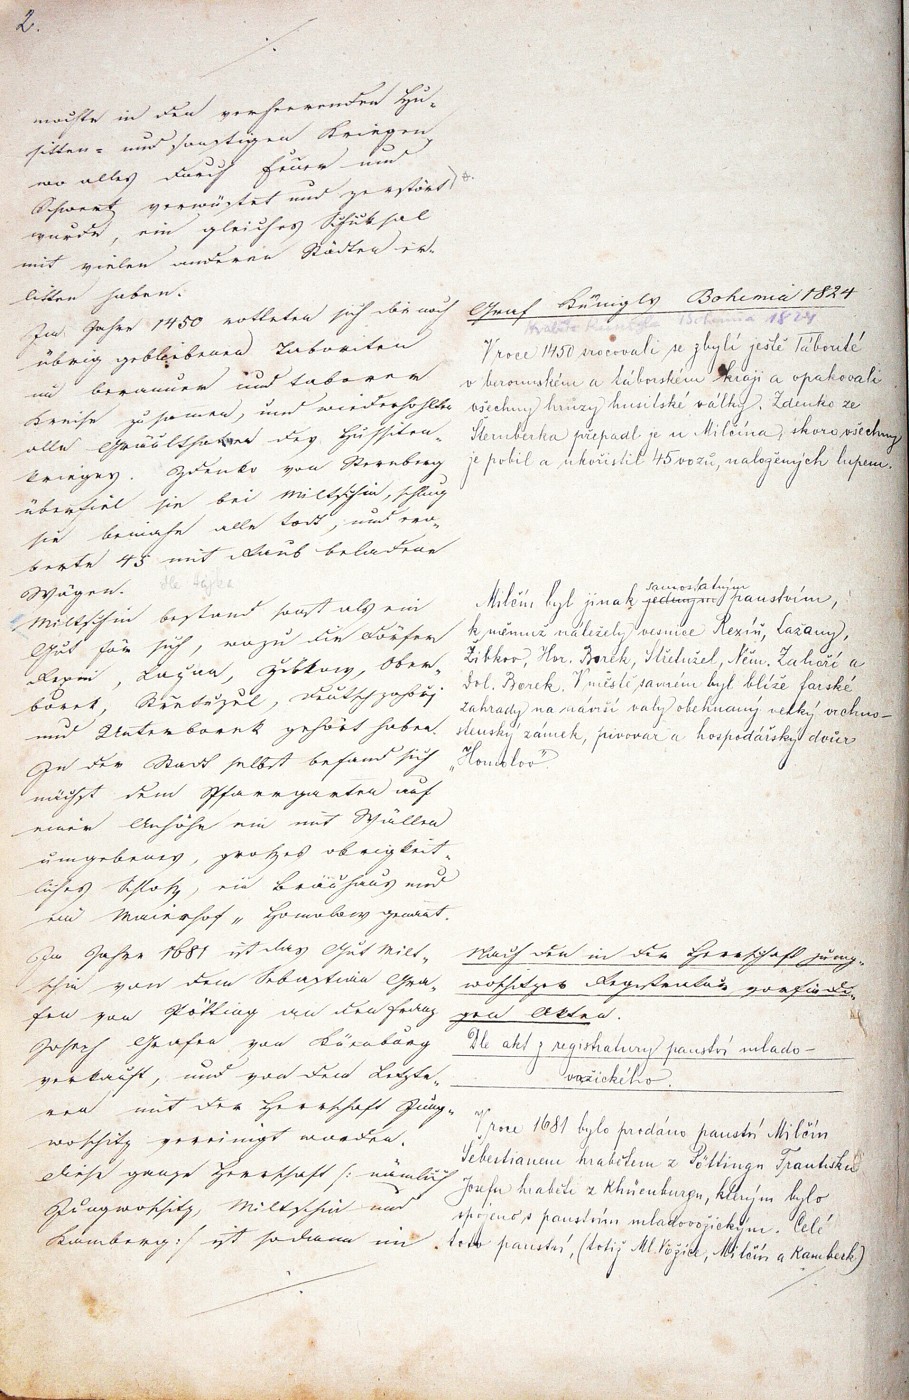 2.
mochte in den verheerenden Hu-
sitten- und sonstigen Kriegen,
wo alles durch Feuer und
Schwert verwüstet und zerstört
wurde, ein gleiches Schiksal
mit vielen anderen Städten er-
litten haben.
Im Jahre 1450 rotteten sich die noch
übrig gebliebenen Taboriten
im berauner und taborer
Kreise zusamen, und wiederhohlten
alle Gräuelthaten des Hussiten-
krieges. Zdenko von Sternberg
überfiel sie bei Miltschin, schlug
sie beinahe alle todt, und ero-
berte 45 mit Raub beladene
Wägen. dle Hájka
Miltschin bestand sonst als ein
Gut für sich, wozu die Dörfer
Řepin, Lažan, Žibkow, Ober-
borek, Střetužel, Deutschzahořj
und Unterborek gehört haben.
In der Stadt selbst befand sich
nächst dem Pfarrgarten auf
einer Anhöhe ein mit Wällen
umgebenes, großes obrigkeit-
liches Schloß, ein Bräuhaus und
ein Maierhof „Homolow genant.
Im Jahre 1681 ist das Gut Milt-
schin von dem Sebastian Gra-
fen von Pötting an den Franz
Joseph Grafen von Küenburg
verkauft, und von dem Letzte-
ren mit der Herrschaft Jung-
woschitz vereinigt worden.
Diese ganze Herrschaft /: nämlich
Jungwoschitz, Miltschin und
Kamberg :/ ist sodann im
Graf Künigly Bohemia 1824
Hrabě Künigl Bohemia 1824
V roce 1450 srocovali se zbylí ještě Táborité
v berounském a táborském kraji a opakovali
všechny hrůzy husitské války. Zdenko ze
Šternberka přepadl je u Milčína, skoro všechny
je pobil a ukořistil 45 vozů, naložených lupem.
samostatným
Milčín byl jinak jediným panstvím,
k němuž náležely vesnice Řepín, Lažany,
Žibkov, Hor. Borek, Střetužel, Něm. Záhoří a
Dol. Borek. V městě samém byl blíže farské
zahrady na návrší valy obehnaný velký vrchno-
stenský zámek, pivovar a hospodářský dvůr
„Homolov".
Nach den in der Herrschaft jung-
woschitzer Registratur vorfindi-
gen Akten.
Dle akt z registratury panství mlado-
vožického.
V roce 1681 bylo prodáno panství Milčín
Šebestianem hrabětem z Pöttingu Františku
Josefu hraběti z Khüenburgu, kterým bylo
spojeno s panstvím mladovožickým. Celé
toto panství, (totiž Ml. Vožice, Milčín a Kamberk)